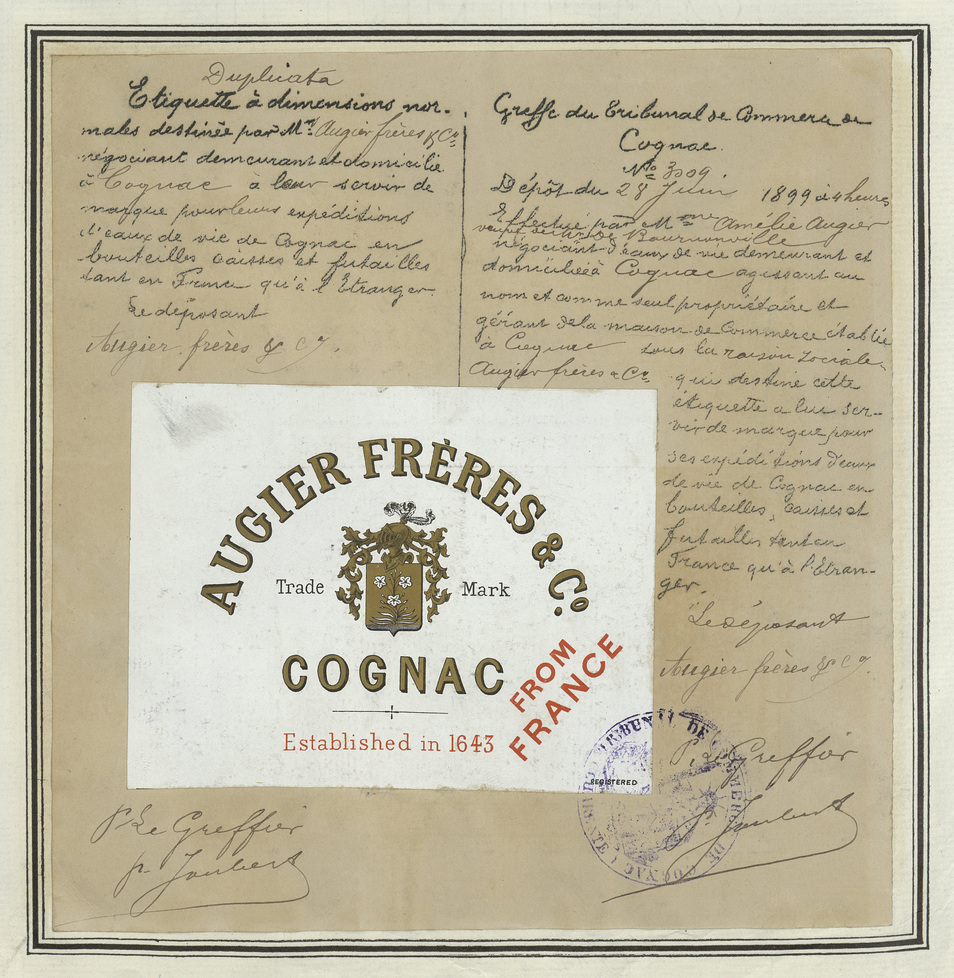 Duplicata
Etiquette à dimensions nor-
males destinée par Mr. Augier frères & Co
négociant demeurant et domicilié
à Cognac à leur servir de
marque pour leurs expéditions
d'eaux de vie de Cognac en
bouteilles caisses et futailles
tant en France qu'à l'Etranger
Le déposant
Augier frères & Co.
Greffe du Tribunal de Commerce de
Cognac.
No 3009.
Dépôt du 28 Juin 1899 à 4 heures
Effectué par Mme Amélie Augier
veuve de Bournonville
négociant d'eaux de vie demeurant et
domiciliée à Cognac agissant au
nom et comme seul propriétaire et
gérant de la maison de Commerce établie
à Cognac sous la raison sociale
Augier frères & Co
qui destine cette
étiquette a lui ser-
vir de marque pour
ses expéditions d'eaux
de vie de Cognac en
bouteilles, caisses et
futailles tant en
France qu'à l'Etran-
ger.
Le déposant
Augier frères & Co.
AUGIER FRÈRES & Co.
Trade Mark
COGNAC
FROM
FRANCE
Established in 1643
REGISTERED
TRIBUNAL DE COMMERCE DE COGNAC
P. Le Greffier
p. Joubert
P. Le Greffier
p. Joubert